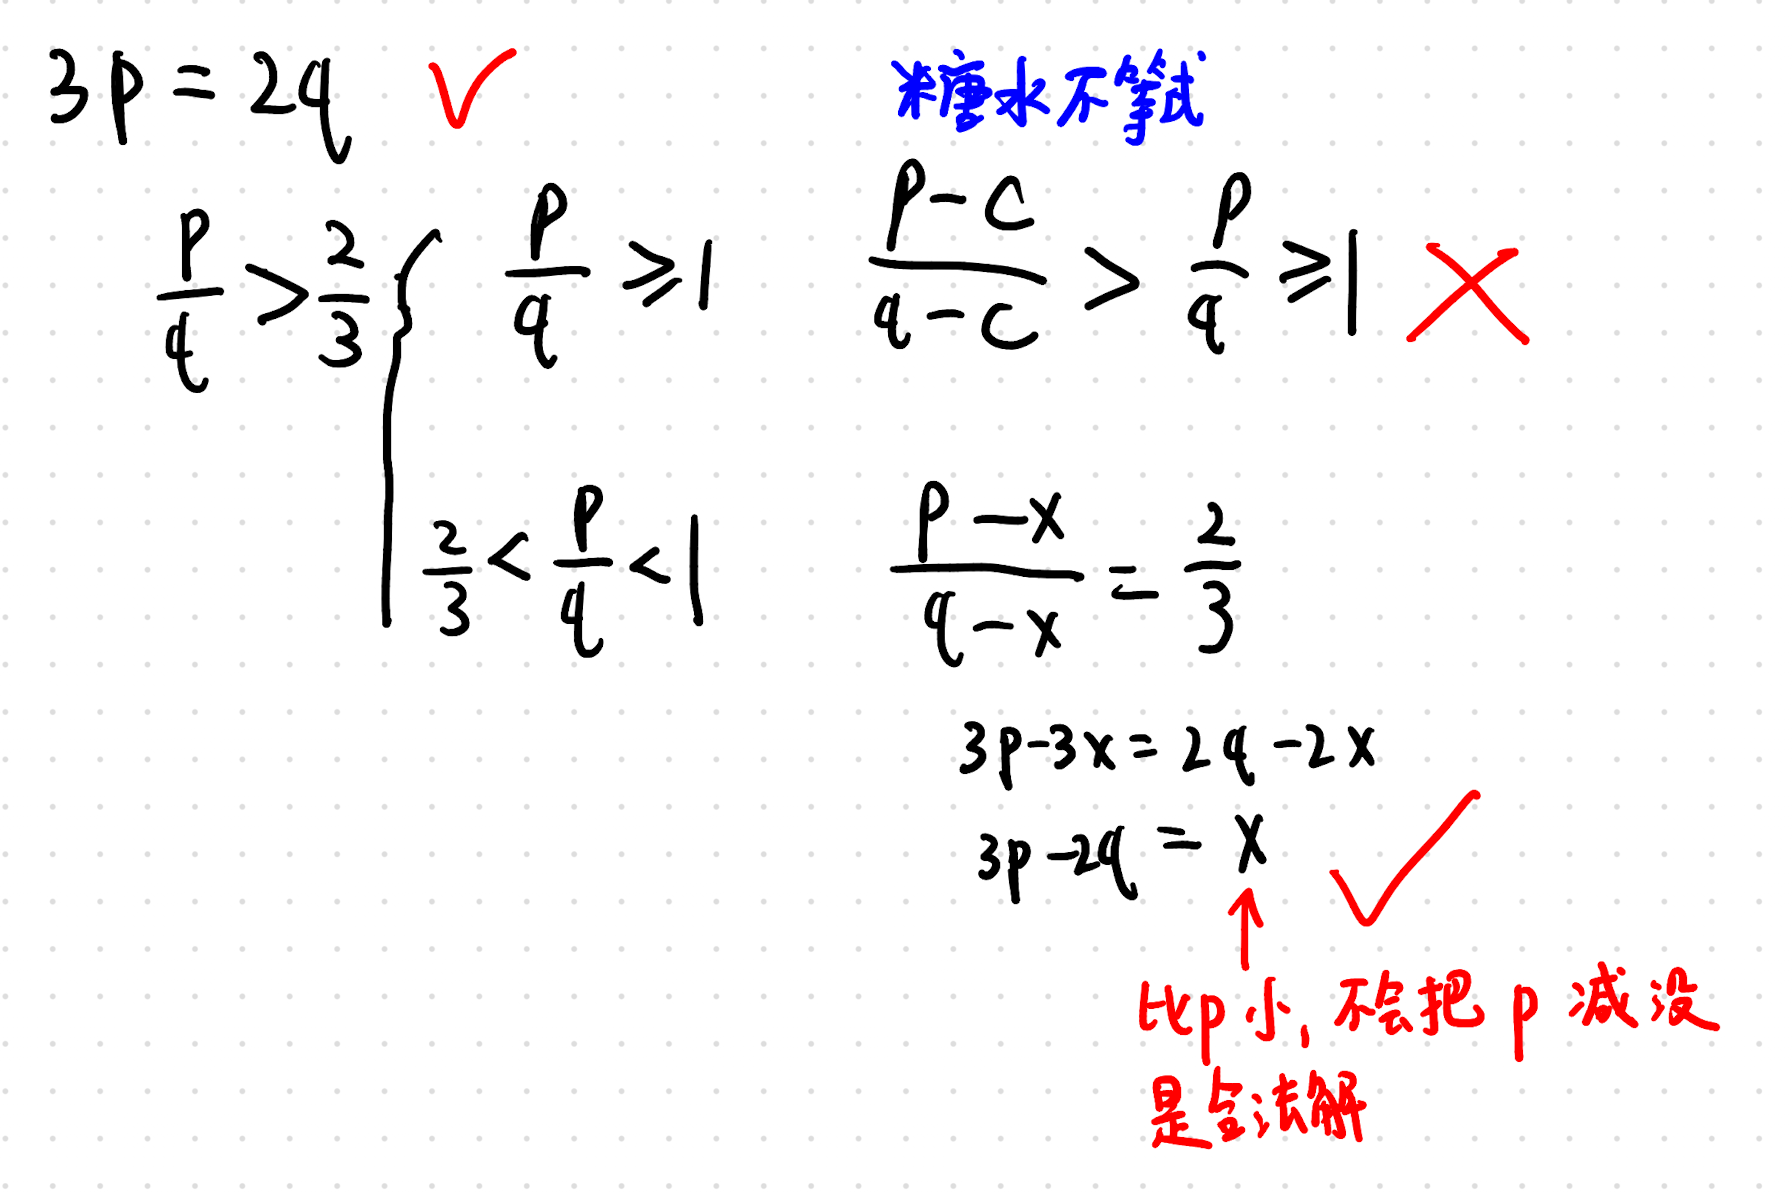 3p = 2q ✓
糖水不等式
p/q > 2/3 { p/q ⩾ 1
(p-c)/(q-c) > p/q ⩾ 1 ×
2/3 < p/q < 1
(p-x)/(q-x) = 2/3
3p-3x = 2q-2x
3p-2q = x ✓
↑
比p小, 不会把 p 减没
是合法解